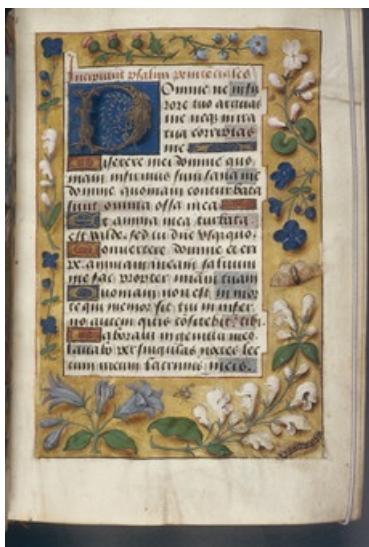 Incipiunt psalmi penitenciales
Domine ne in fu
rore tuo arguas
me neqz in ira
tua corripias
me
Miserere mei domine quo
niam infirmus sum sana me
domine quoniam conturbata
sunt omnia ossa mea
Et anima mea turbata
est valde sed tu dne usquequo
Convertere domine et eri
pe animam meam saluum
me fac propter miam tuam
Quoniam non est in mor
te qui memor sit tui in infer
no autem quis confitebit tibi
Laboravi in gemitu meo
lavabo per singulas noctes lec
tum meum lacrimis meis.